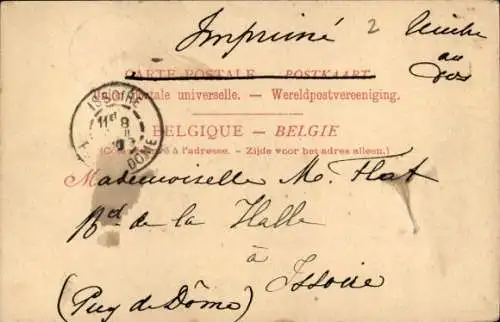 Imprimé 2 Timbre
au
dos
CARTE POSTALE — POSTKAART
postale universelle. — Wereldpostvereeniging.
BELGIQUE — BELGIE
à l'adresse. – Zijde voor het adres alleen.)
ISSOIRE
8
DOME
Mademoiselle M. Flat
Bd de la Halle
à
Issoire
(Puy de Dôme)